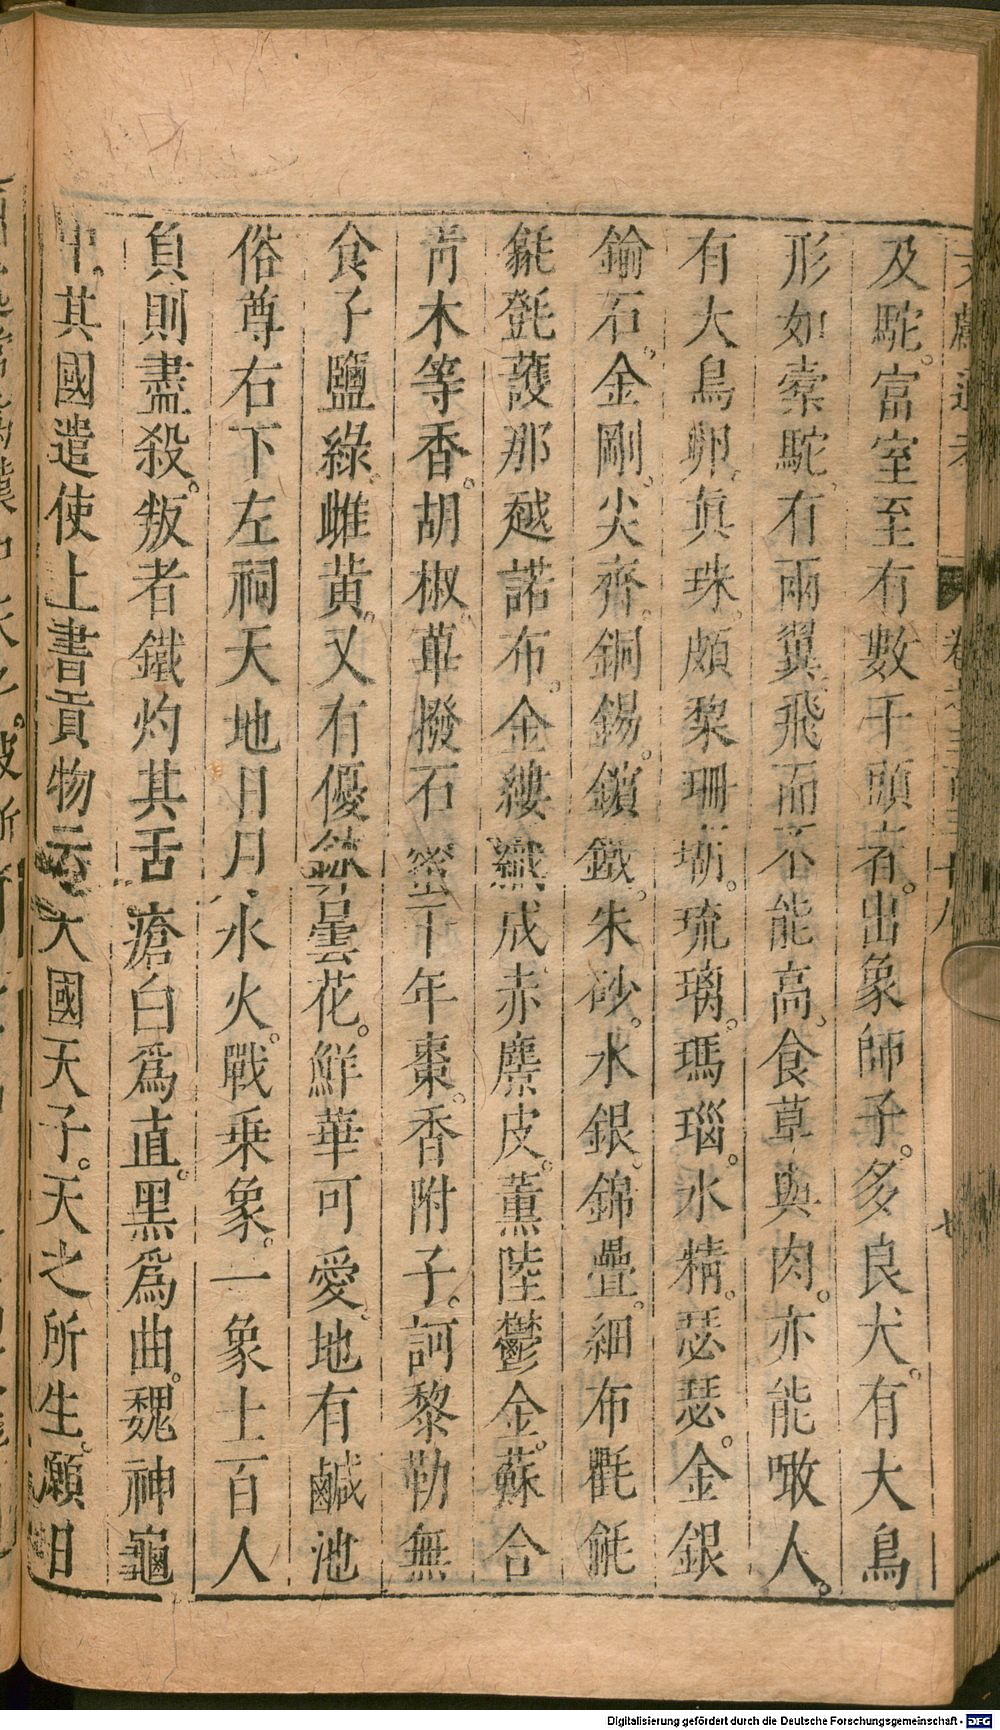 及駝。富室至有數千頭者。出象師子。多良犬。有大鳥
形如橐駝。有兩翼飛而不能高。食草與肉。亦能噉人。
有大鳥卵。眞珠。頗黎珊瑚。琉璃。瑪瑙。水精。瑟瑟。金銀
鍮石。金剛。尖齊。銅錫。鑌鐵。朱砂。水銀。錦疊。細布氍毹
㲪㲮護那越諾布。金縷織成赤麖皮。薰陸鬱金。蘇合
靑木等香。胡椒蓽撥石蜜千年棗。香附子。訶黎勒無
食子鹽綠。雌黃。又有優鉢曇花。鮮華可愛。地有鹹池
俗尊右下左祠天地日月水火。戰乗象。一象士百人
負則盡殺。叛者鐵灼其舌瘡白爲直。黑爲曲。魏神龜
中。其國遣使上書貢物云大國天子。天之所生。願日
Digitalisierung gefördert durch die Deutsche Forschungsgemeinschaft - DFG